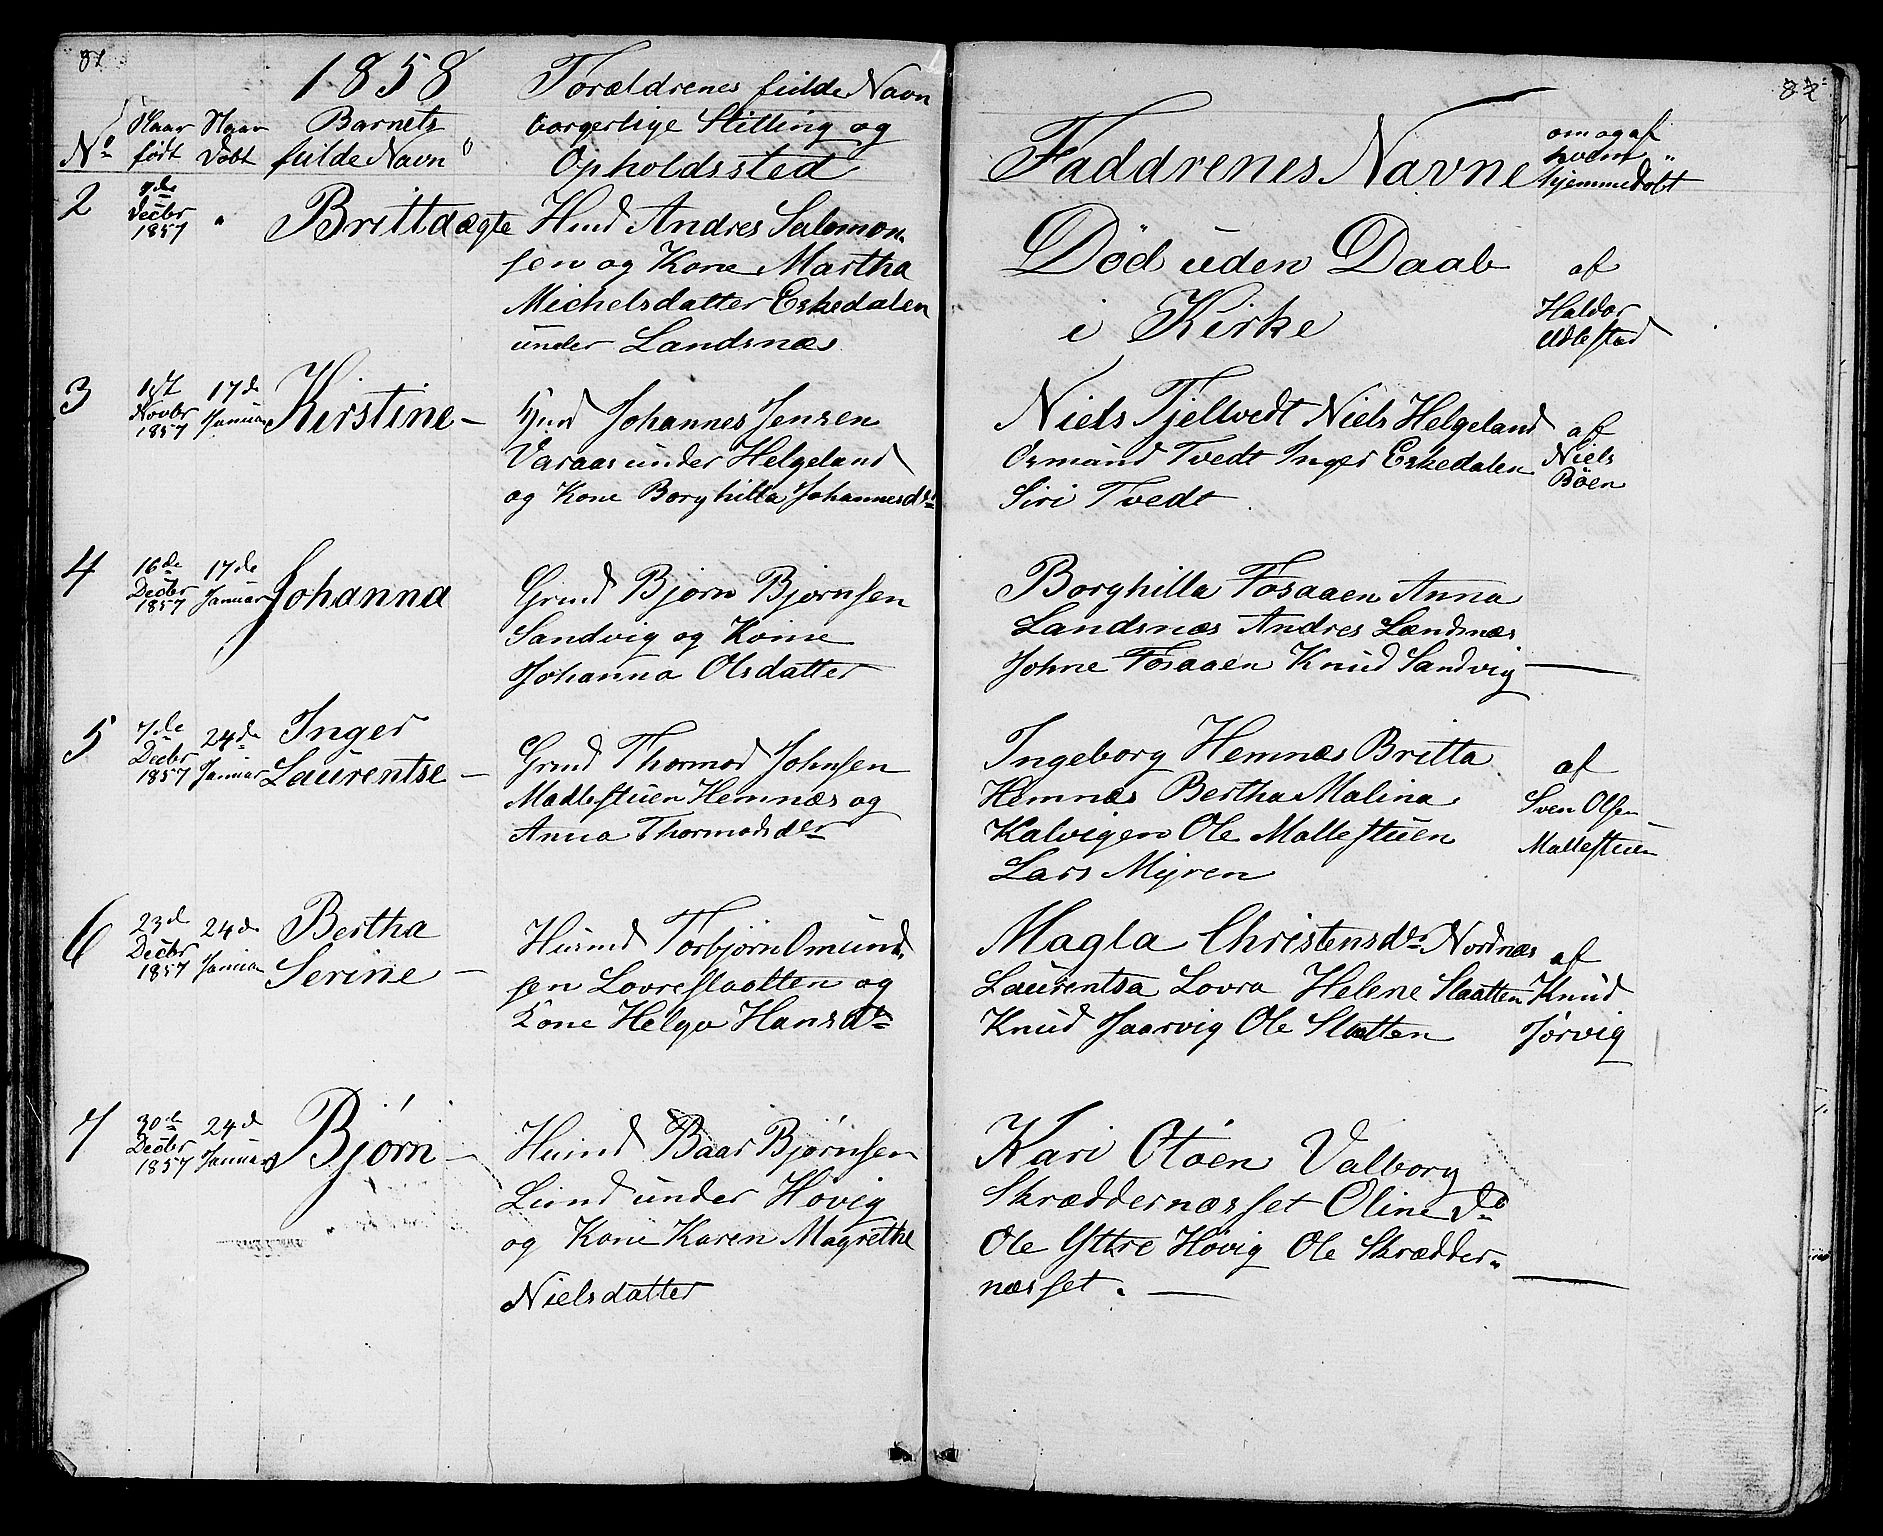 81
1858
No Naar født Naar Døbt Barnets fulde Navn
Forældrenes fulde Navn
borgerlige Stilling og
Opholdssted
2 7de Decbr 1857 " Britta ægte
Hmd Andres Salomon-
sen og Kone Martha
Michelsdatter Eskedalen
under Landsnæs
3 Novbr 1857 17de Januar Kirstine –
Hmd Johannes Jensen
Varaas under Helgeland
og Kone Borghilla Johannesdr
4 16de Decbr 1857 17de Januar Johanna
Grmd Bjørn Bjørnsen
Sandvig og Kone
Johanna Olsdatter
5 7de Decbr 1857 24de Januar Inger
Laurentse –
Grmd Thormod Johnsen
Mallestuen Hemnæs og
Anna Thormodsdr
6 23de Decbr 1857 24de Januar Bertha
Serine –
Husmd Torbjørn Omund-
sen Lovreslaatten og
Kone Helga Hansdr
7 30de Decbr 1857 24de Januar Bjørn –
Husmd Baar Bjørnsen
Lund under Høvig
og Kone Karen Magrethe
Nielsdatter
82
Faddrenes Navne
om og af
hvem
hjemmedøbt
Død uden Daab
i Kirke
af
Haldor
Udlestad
Niels Tjeltvedt Niels Helgeland
Osmund Tvedt Inger Eskedalen
Siri Tvedt
af
Niels
Bøen
Borghilla Fosaaen Anna
Landsnæs Andres Landsnæs
Johne Fosaaen Knud Sandvig –
Ingeborg Hemnæs Britta
Hemnæs Bertha Malina
Kalvigen Ole Mallestuen
Lars Myren
af
Sven Olsen
Mallestuen
Magla Christensdr Nordnæs
Laurentsa Lovra Helene Slaatten
Knud Jaarvig Ole Slatten
af
Knud
Jørvig
Kari Otøen Valborg
Skræddernæsset Oline do
Ole Ytre Høvig Ole Skrædder-
næsset. –